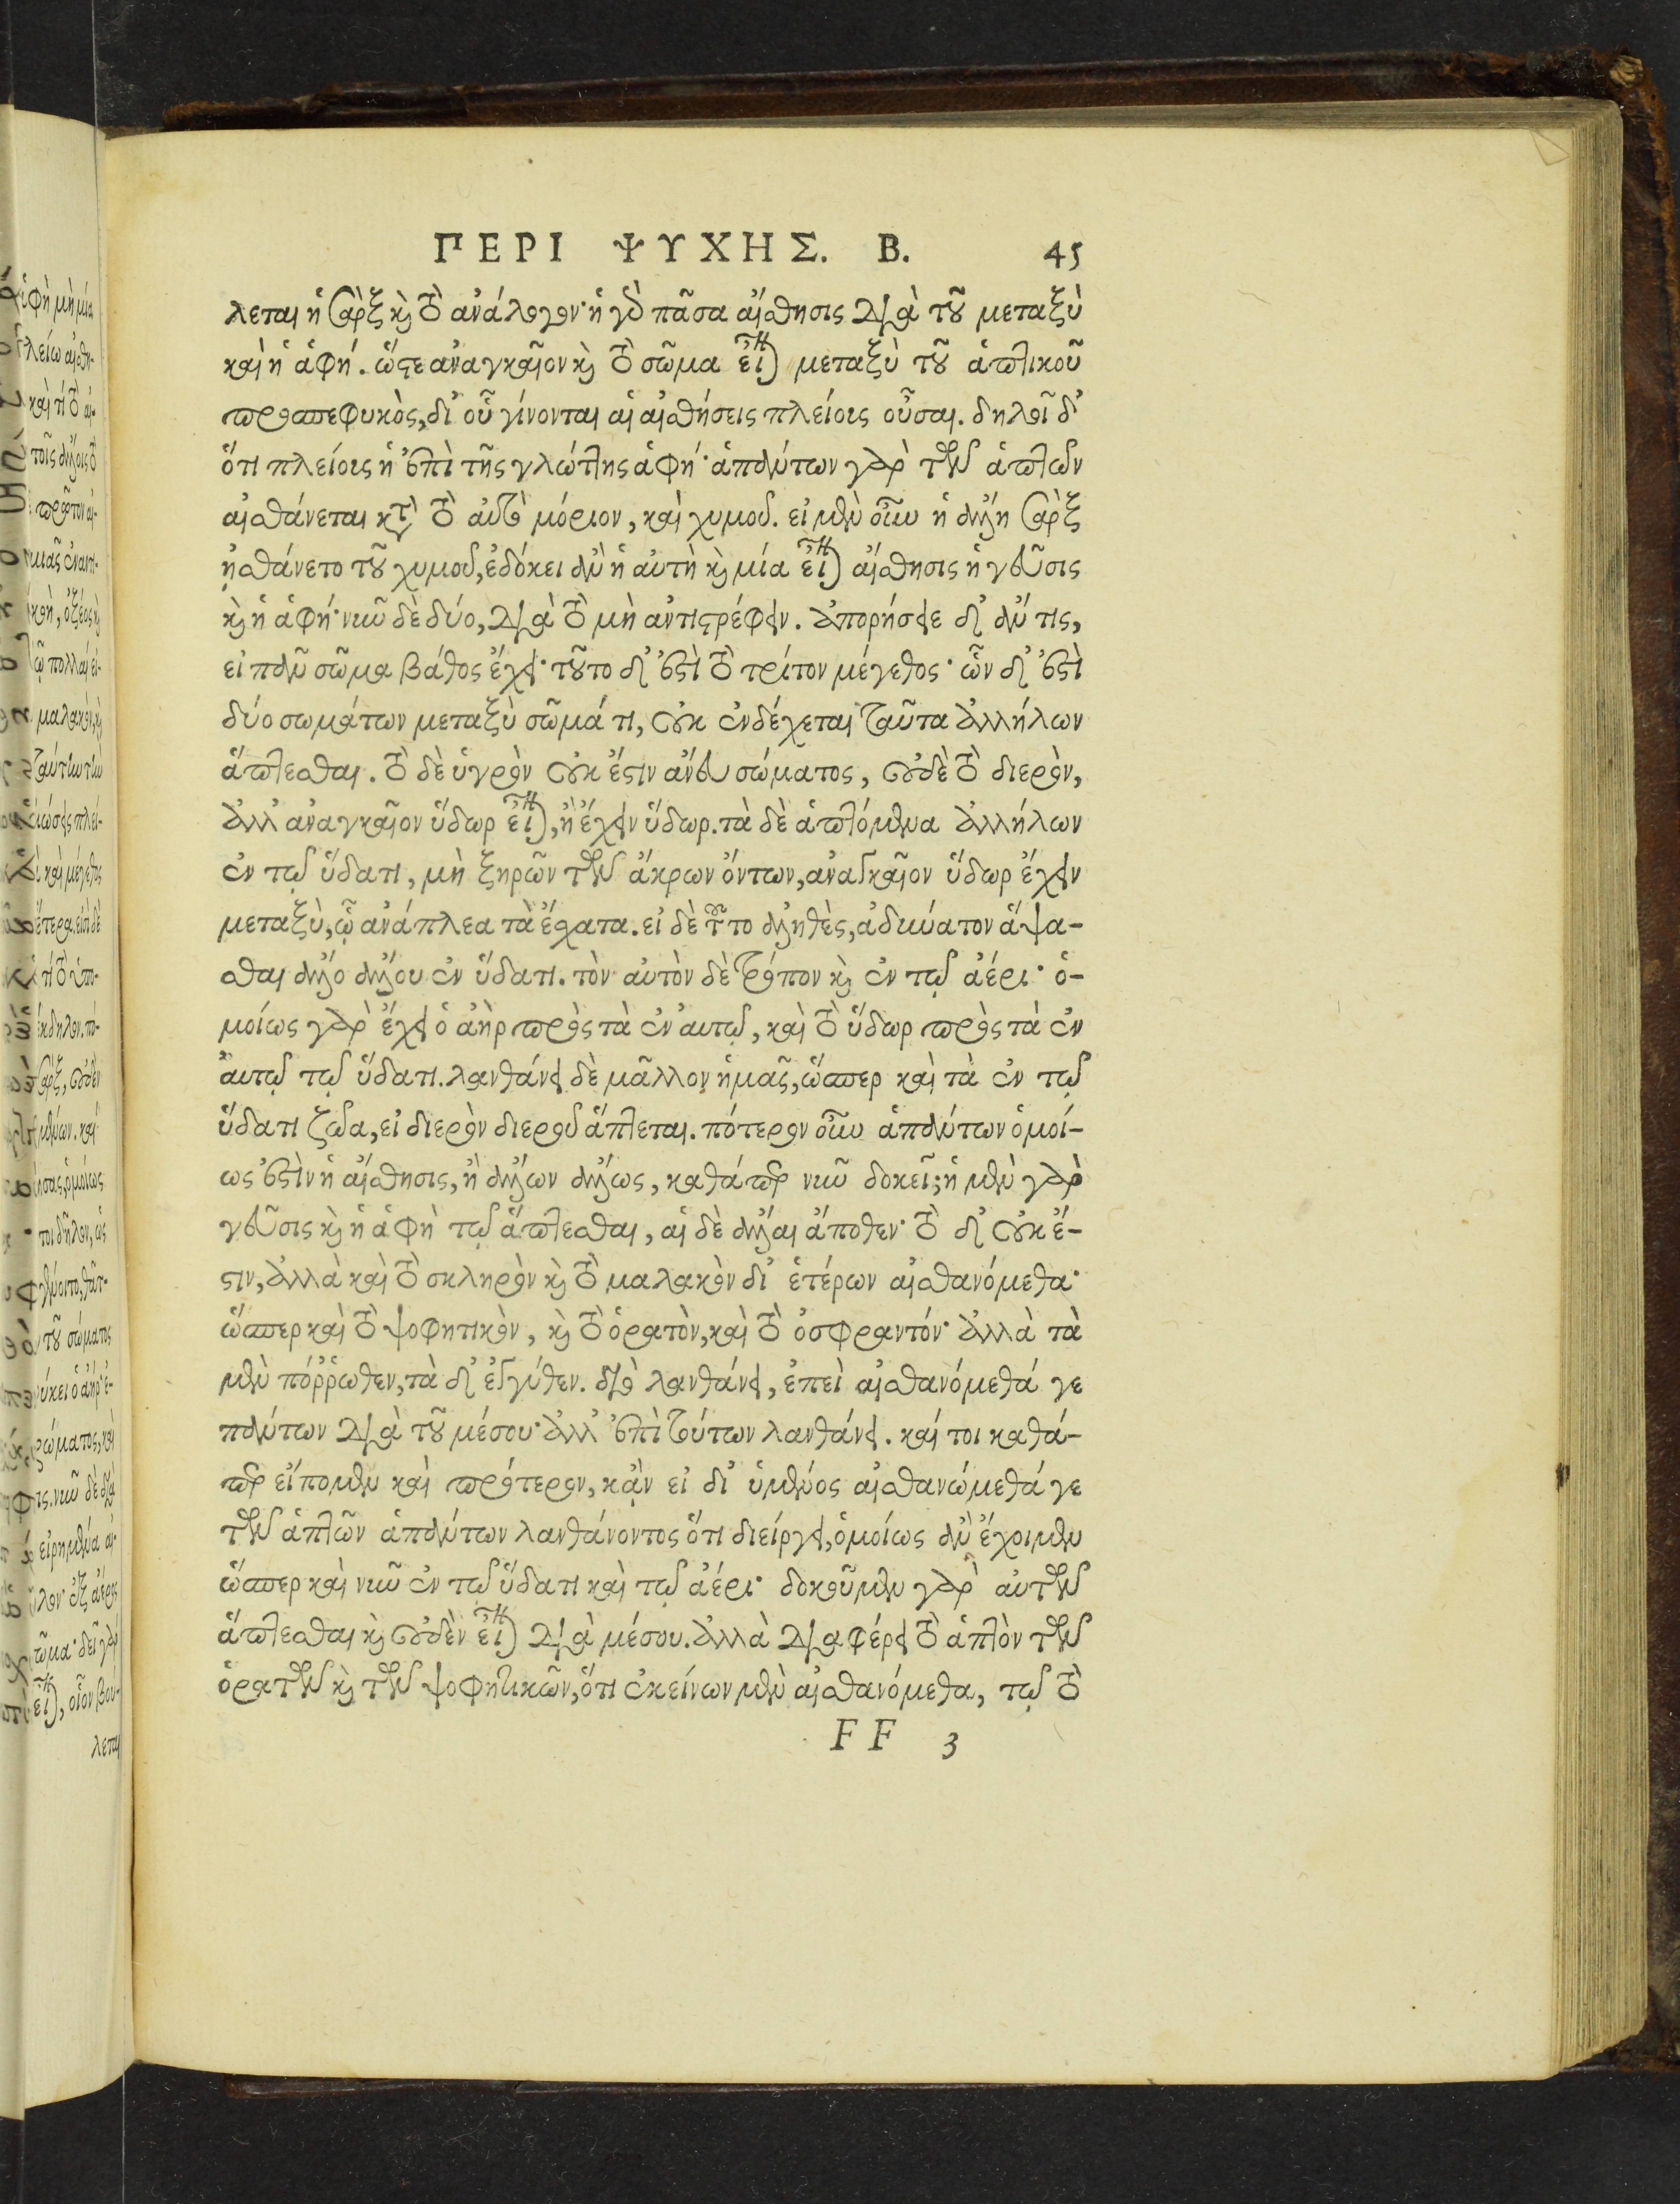 ΠΕΡΙ ΨΥΧΗΣ. Β. 45
λεται ἡ σὰρξ καὶ τὸ ἀνάλογον· ἡ γὰρ πᾶσα αἴσθησις διὰ τοῦ μεταξὺ
καὶ ἡ ἁφή. ὥστε ἀναγκαῖον καὶ τὸ σῶμα εἶναι μεταξὺ τοῦ ἁπτικοῦ
προσπεφυκὸς, δι' οὗ γίνονται αἱ αἰσθήσεις πλείους οὖσαι. δηλοῖ δ'
ὅτι πλείους ἡ ἐπὶ τῆς γλώττης ἁφή· ἁπάντων γὰρ τῶν ἁπτῶν
αἰσθάνεται κατὰ τὸ αὐτὸ μόριον, καὶ χυμοῦ. εἰ μὲν οὖν ἡ ἄλλη σὰρξ
ᾐσθάνετο τοῦ χυμοῦ, ἐδόκει ἂν ἡ αὐτὴ καὶ μία εἶναι αἴσθησις ἡ γεῦσις
καὶ ἡ ἁφή· νῦν δὲ δύο, διὰ τὸ μὴ ἀντιστρέφειν. ἀπορήσειε δ' ἄν τις,
εἰ πᾶν σῶμα βάθος ἔχει· τοῦτο δ' ἐστὶ τὸ τρίτον μέγεθος· ὧν δ' ἐστὶ
δύο σωμάτων μεταξὺ σῶμά τι, οὐκ ἐνδέχεται ταῦτα ἀλλήλων
ἅπτεσθαι. τὸ δὲ ὑγρὸν οὐκ ἔστιν ἄνευ σώματος, οὐδὲ τὸ διερὸν,
ἀλλ' ἀναγκαῖον ὕδωρ εἶναι, ἢ ἔχειν ὕδωρ. τὰ δὲ ἁπτόμενα ἀλλήλων
ἐν τῷ ὕδατι, μὴ ξηρῶν τῶν ἄκρων ὄντων, ἀναγκαῖον ὕδωρ ἔχειν
μεταξὺ, ᾧ ἀνάπλεα τὰ ἔσχατα. εἰ δὲ τοῦτο ἀληθὲς, ἀδύνατον ἅψα-
σθαι ἄλλο ἄλλου ἐν ὕδατι. τὸν αὐτὸν δὲ τρόπον καὶ ἐν τῷ ἀέρι· ὁ-
μοίως γὰρ ἔχει ὁ ἀὴρ πρὸς τὰ ἐν αὐτῷ, καὶ τὸ ὕδωρ πρὸς τὰ ἐν
αὐτῷ τῷ ὕδατι. λανθάνει δὲ μᾶλλον ἡμᾶς, ὥσπερ καὶ τὰ ἐν τῷ
ὕδατι ζῶα, εἰ διερὸν διεροῦ ἅπτεται. πότερον οὖν ἁπάντων ὁμοί-
ως ἐστὶν ἡ αἴσθησις, ἢ ἄλλων ἄλλως, καθάπερ νῦν δοκεῖ; ἡ μὲν γὰρ
γεῦσις καὶ ἡ ἁφὴ τῷ ἅπτεσθαι, αἱ δὲ ἄλλαι ἄποθεν· τὸ δ' οὐκ ἔ-
στιν, ἀλλὰ καὶ τὸ σκληρὸν καὶ τὸ μαλακὸν δι' ἑτέρων αἰσθανόμεθα·
ὥσπερ καὶ τὸ ψοφητικὸν, καὶ τὸ ὁρατὸν, καὶ τὸ ὀσφραντόν· ἀλλὰ τὰ
μὲν πόῤῥωθεν, τὰ δ' ἐγγύθεν. διὸ λανθάνει, ἐπεὶ αἰσθανόμεθά γε
πάντων διὰ τοῦ μέσου· ἀλλ' ἐπὶ τούτων λανθάνει. καί τοι καθά-
περ εἴπομεν καὶ πρότερον, κἂν εἰ δι' ὑμένος αἰσθανώμεθά γε
τῶν ἁπτῶν ἁπάντων λανθάνοντος ὅτι διείργει, ὁμοίως ἂν ἔχοιμεν
ὥσπερ καὶ νῦν ἐν τῷ ὕδατι καὶ τῷ ἀέρι· δοκοῦμεν γὰρ αὐτῶν
ἅπτεσθαι καὶ οὐδὲν εἶναι διὰ μέσου. ἀλλὰ διαφέρει τὸ ἁπτὸν τῶν
ὁρατῶν καὶ τῶν ψοφητικῶν, ὅτι ἐκείνων μὲν αἰσθανόμεθα, τῷ τὸ
FF 3